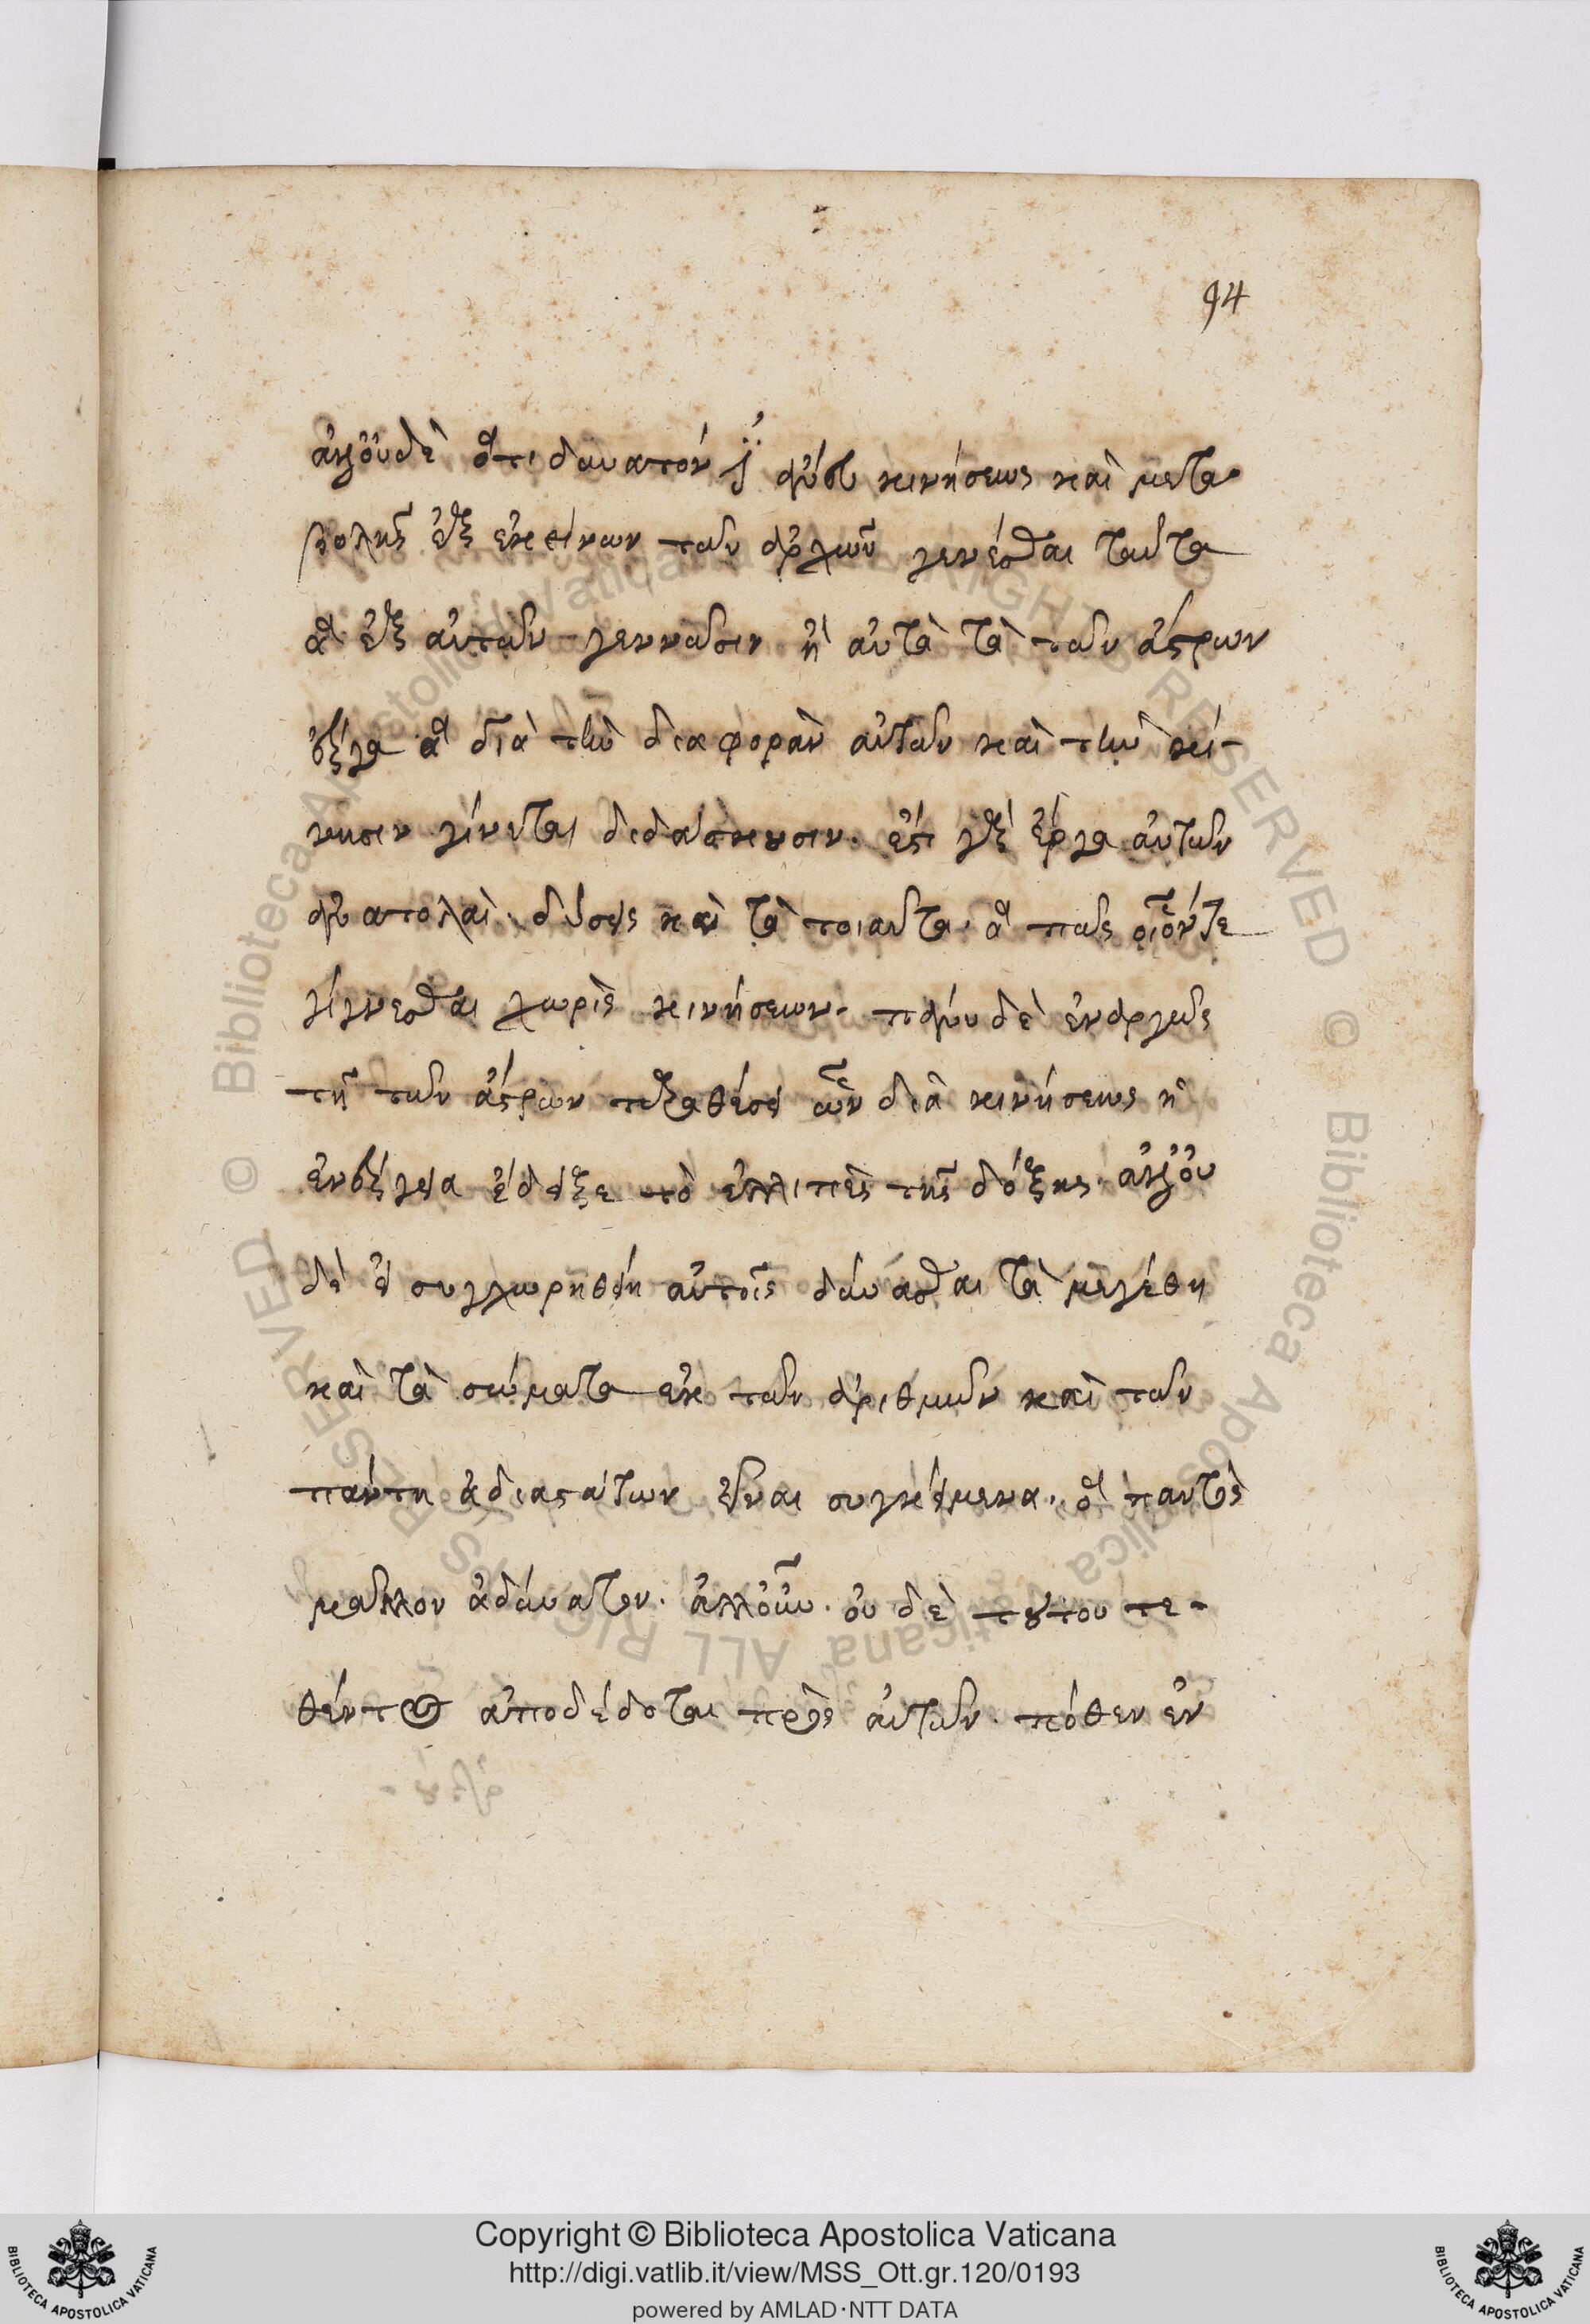 94
ἀλλ' οὐδὲ ὅτι δυνατόν ἐστι ἄνευ κινήσεως καὶ μετα
βολῆς ἐξ ἐκείνων τῶν ἀρχῶν γενέσθαι ταῦτα
ἃ ἐξ αὐτῶν γεννῶσιν ἢ αὐτὰ τὰ τῶν ἄστρων
ἔργα ἃ διὰ τὴν διαφορὰν αὐτῶν καὶ τὴν κί-
νησιν γίνεται διδάσκουσιν. ἔστι γὰρ ἔργα αὐτῶν
ἀνατολαὶ. δύσεις καὶ τὰ τοιαῦτα. ἃ πῶς οἷόντε
γίγνεσθαι χωρὶς κινήσεων. πάνυ δὲ ἐναργῶς
τῇ τῶν ἄστρων παραθέσει ὧν διὰ κινήσεως ἡ
ἐνέργεια ἔδειξε τὸ ἐλλιπὲς τῆς δόξης. ἀλλ' οὐ
δὲ εἰ συγχωρηθείη αὐτοῖς δύνασθαι τὰ μεγέθη
καὶ τὰ σώματα ἐκ τῶν ἀριθμῶν καὶ τῶν
πάντη ἀδιαστάτων εἶναι συγκείμενα. ὃ παντὸς
μᾶλλον ἀδύνατον. ἀλλ' οὖν. οὐδὲ τούτου τε-
θέντος ἀποδέδοται πρὸς αὐτῶν. πόθεν ἐν
Copyright © Biblioteca Apostolica Vaticana
http://digi.vatlib.it/view/MSS_Ott.gr.120/0193
powered by AMLAD·NTT DATA
BIBLIOTECA APOSTOLICA VATICANA
BIBLIOTECA APOSTOLICA VATICANA
© Biblioteca Apostolica Vaticana ALL RIGHTS RESERVED
© Biblioteca Apostolica Vaticana ALL RIGHTS RESERVED